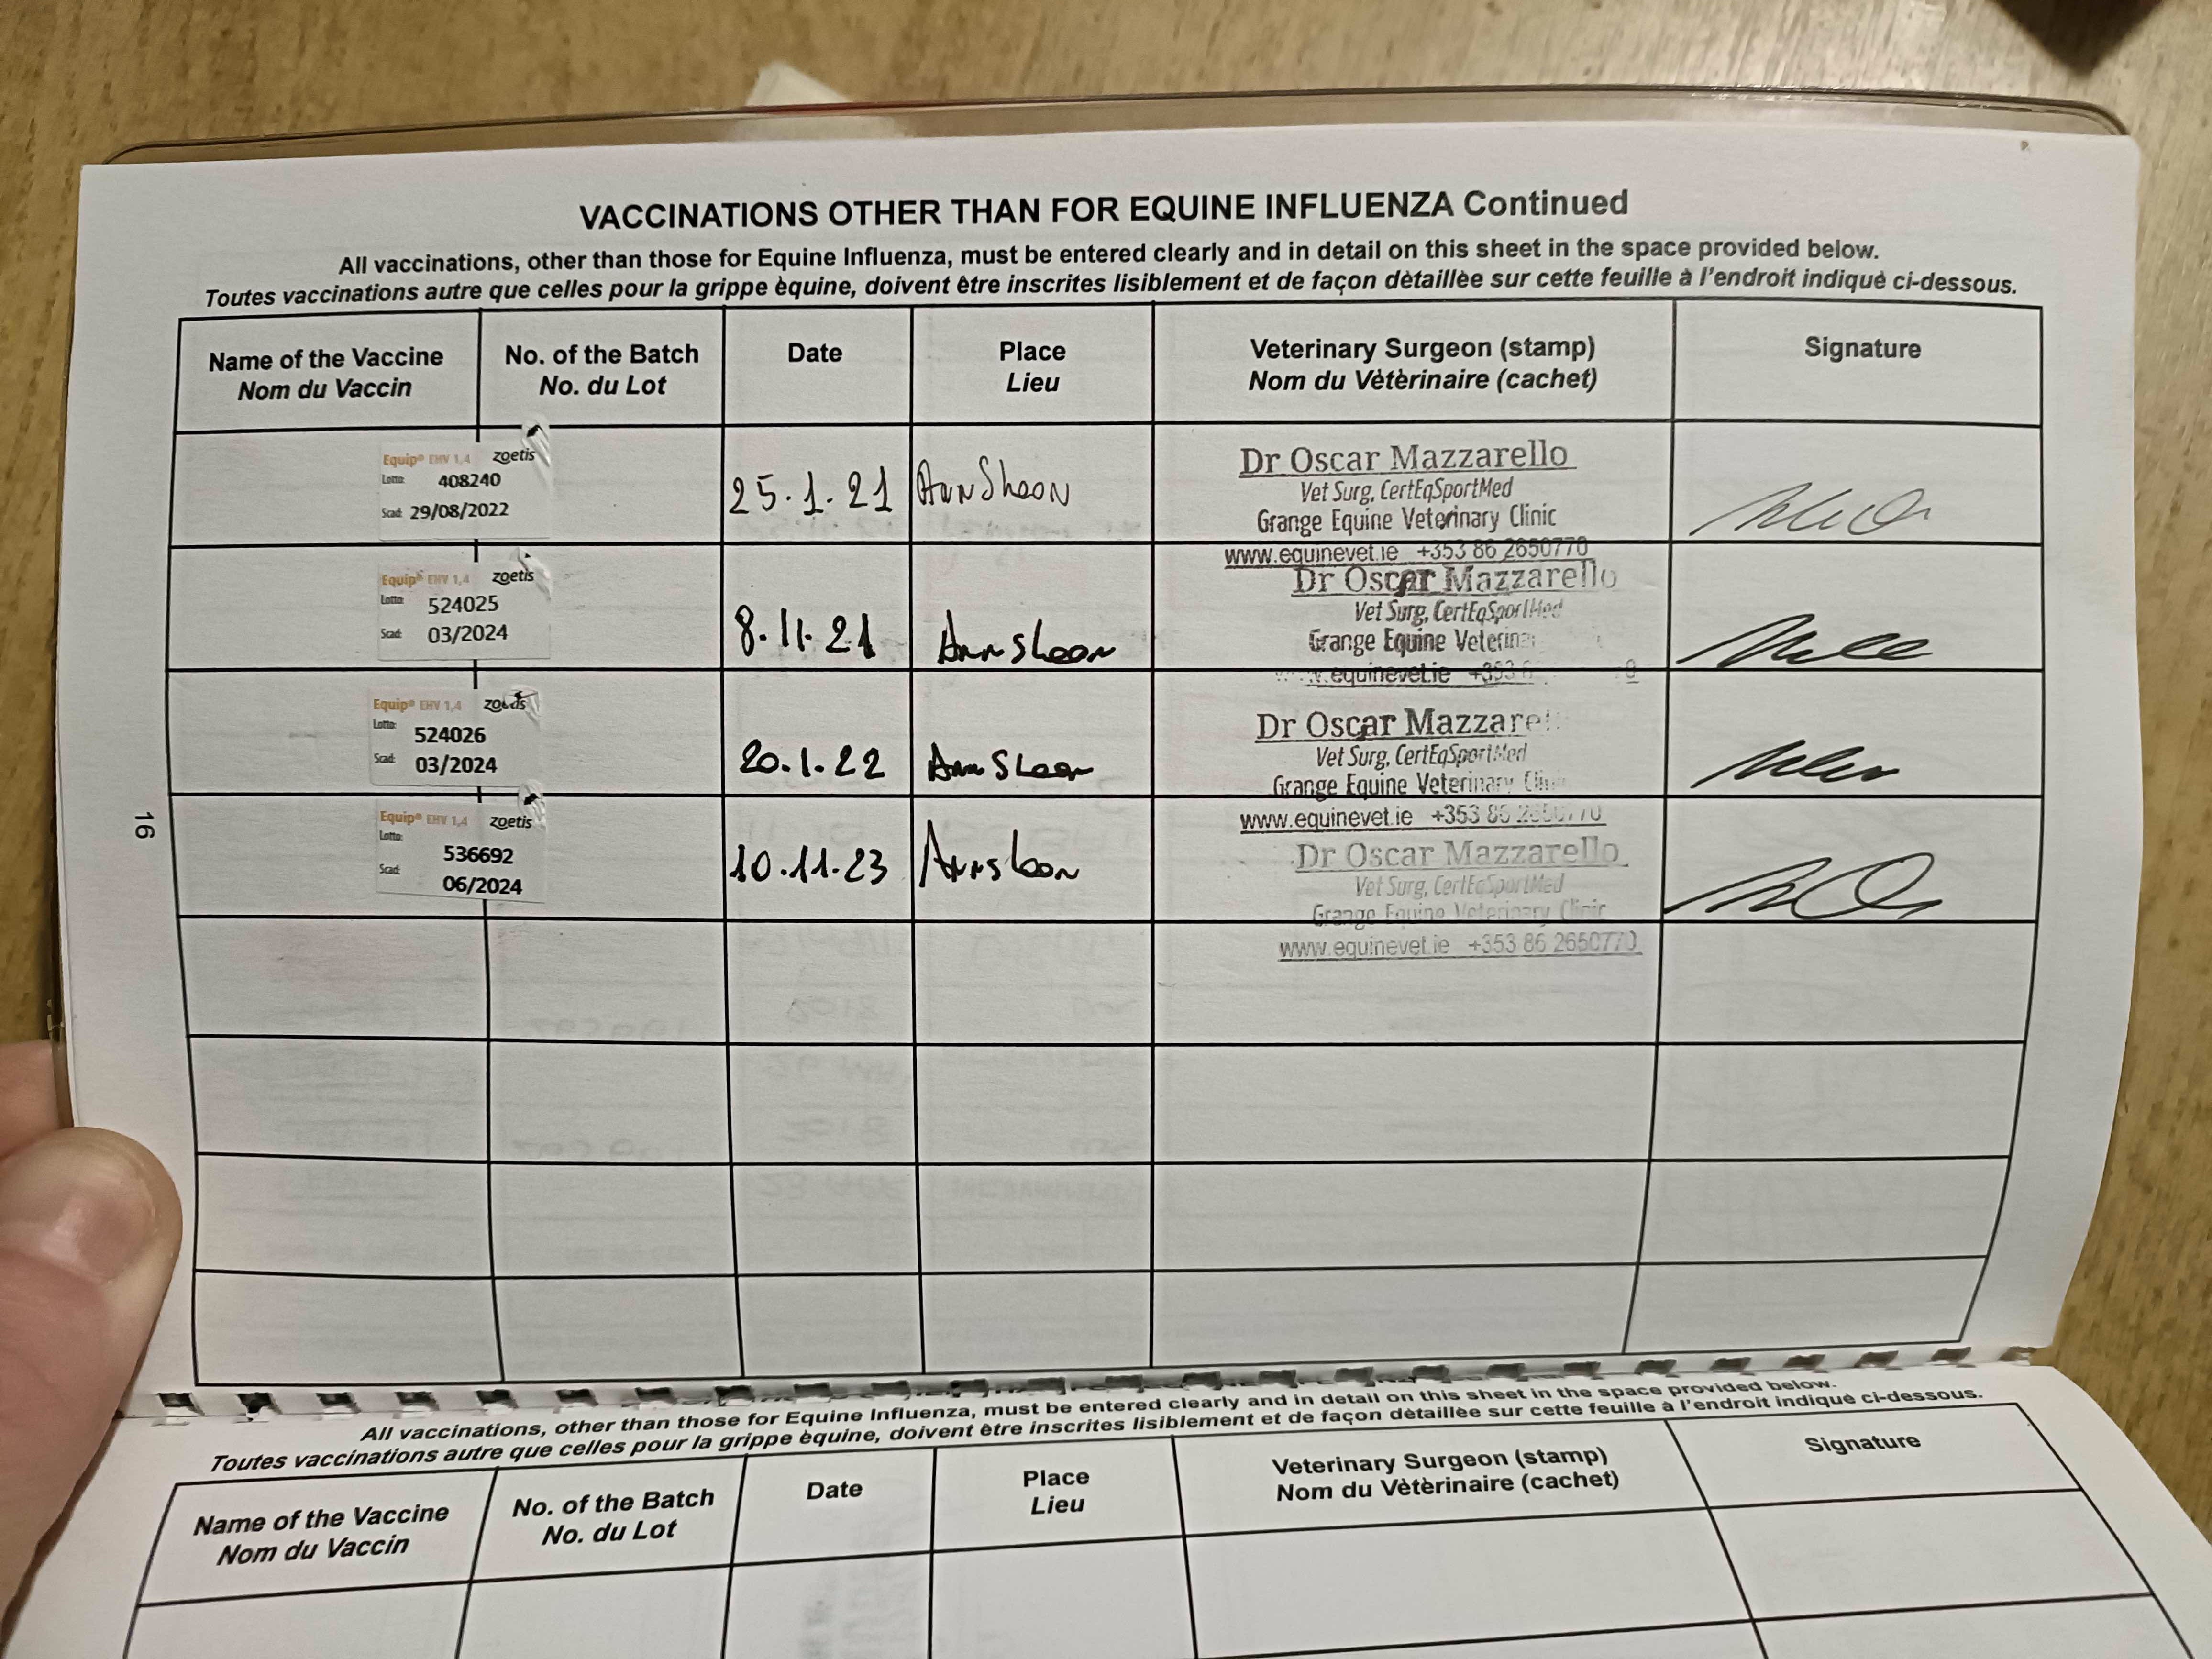 VACCINATIONS OTHER THAN FOR EQUINE INFLUENZA Continued
All vaccinations, other than those for Equine Influenza, must be entered clearly and in detail on this sheet in the space provided below.
Toutes vaccinations autre que celles pour la grippe èquine, doivent être inscrites lisiblement et de façon dètaillèe sur cette feuille à l'endroit indiquè ci-dessous.
Name of the Vaccine
Nom du Vaccin
No. of the Batch
No. du Lot
Date
Place
Lieu
Veterinary Surgeon (stamp)
Nom du Vètèrinaire (cachet)
Signature
Equip® EHV 1,4 zoetis
Lotto: 408240
Scad: 29/08/2022
25.1.21
AnnShoon
Dr Oscar Mazzarello
Vet Surg, CertEqSportMed
Grange Equine Veterinary Clinic
www.equinevet.ie +353 86 2650770
Equip® EHV 1,4 zoetis
Lotto: 524025
Scad: 03/2024
8.11.21
AnnShoon
Dr Oscar Mazzarello
Vet Surg, CertEqSportMed
Grange Equine
equinevet.ie
Equip® EHV 1,4 zoetis
Lotto: 524026
Scad: 03/2024
20.1.22
AnnShoon
Dr Oscar
Vet Surg, CertEqSportMed
Grange Equine Veterinary
www.equinevet.ie +353 86 2650770
Equip® EHV 1,4 zoetis
Lotto: 536692
Scad: 06/2024
10.11.23
Annshoon
Dr Oscar Mazzarello
Vet Surg, CertEqSportMed
Grange Equine Veterinary Clinic
www.equinevet.ie +353 86 2650770
16
All vaccinations, other than those for Equine Influenza, must be entered clearly and in detail on this sheet in the space provided below.
Toutes vaccinations autre que celles pour la grippe èquine, doivent être inscrites lisiblement et de façon dètaillèe sur cette feuille à l'endroit indiquè ci-dessous.
Name of the Vaccine
Nom du Vaccin
No. of the Batch
No. du Lot
Date
Place
Lieu
Veterinary Surgeon (stamp)
Nom du Vètèrinaire (cachet)
Signature